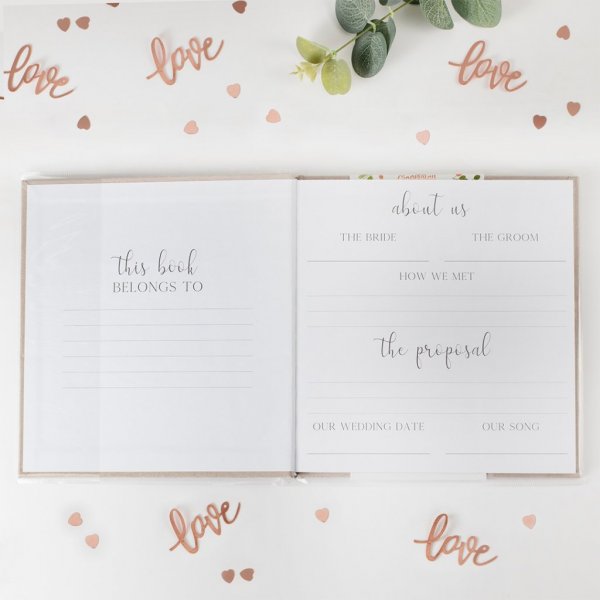 love
love
love
this book
BELONGS TO
about us
THE BRIDE THE GROOM
HOW WE MET
the proposal
OUR WEDDING DATE OUR SONG
love
love